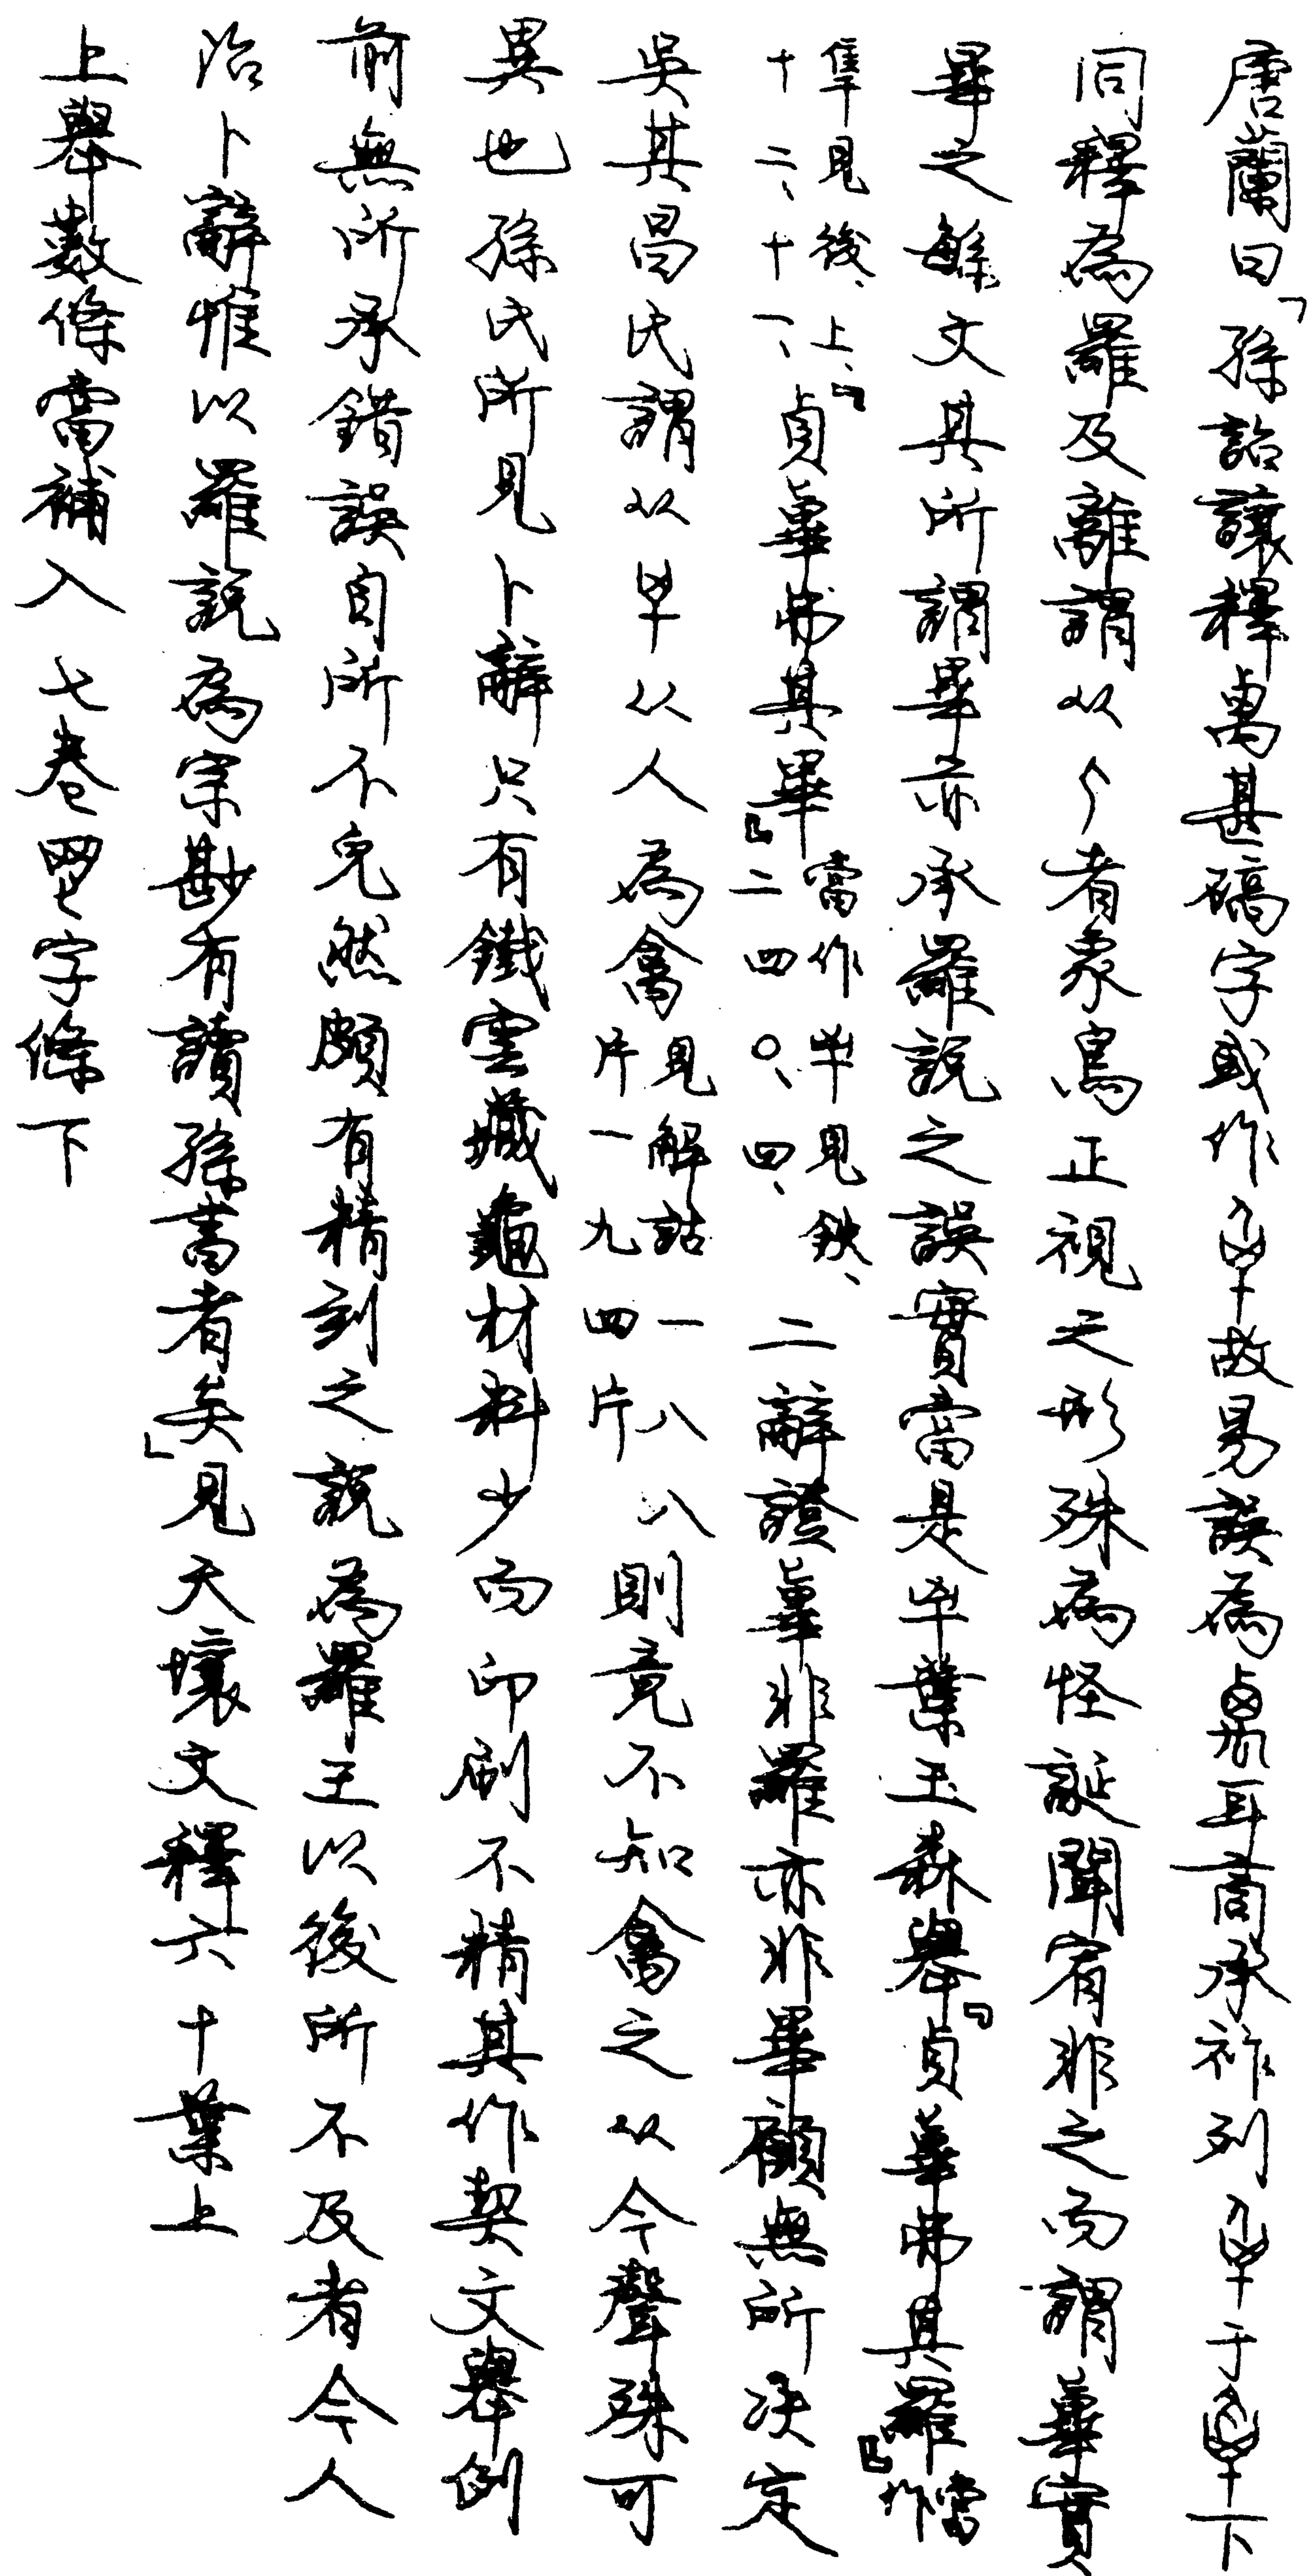 唐蘭曰「孫詒讓釋禼甚礄字或作故易誤為耳商承祚列于下
同釋為羅及離謂从者象鳥正視之形殊為怪誕聞宥非之而謂畢實
畢之緐文其所謂畢亦承羅說之誤實當是葉玉森舉『貞畢弗其羅』當作
隼見後、上、十二、十一、『貞畢弗其畢』當作見鉄、二四〇、四、二辭證畢非羅亦非畢顧無所決定
吳其昌氏謂从从人為禽見解詁一八八片一九四片則竟不知禽之从今聲殊可
異也孫氏所見卜辭只有鐵雲藏龜材料少而印刷不精其作契文舉例
前無所承錯誤自所不免然頗有精到之說為羅王以後所不及者今人
治卜辭惟以羅說為宗尠有讀孫書者矣」見天壤文釋六十葉上
上舉數條當補入七卷字條下